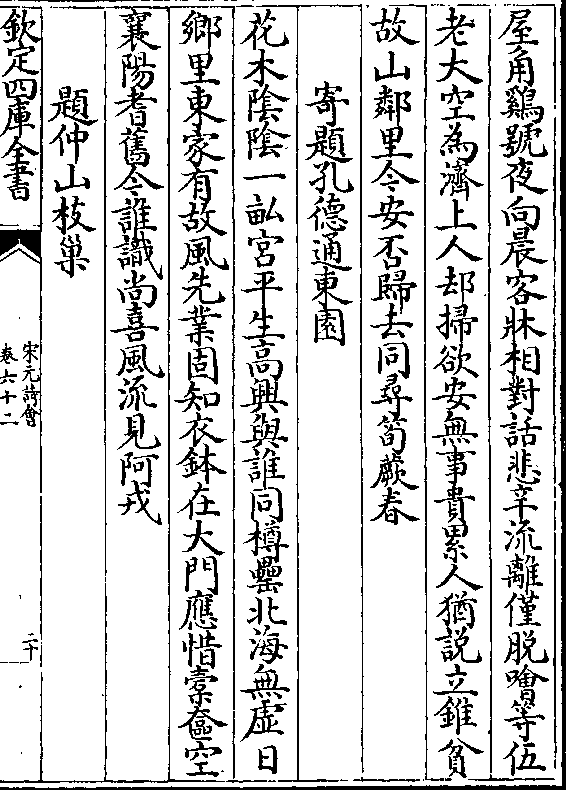 屋角鷄號夜向晨客牀相對話悲辛流離僅脱噲等伍
老大空為濟上人却掃欲安無事貴累人猶説立錐貧
故山鄰里今安否歸去同尋筍蕨春
寄題孔德通東園
花木陰陰一畝宮平生高興與誰同樽罍北海無虛日
鄉里東家有故風先業固知衣鉢在大門應惜橐奩空
襄陽耆舊今誰識尚喜風流見阿戎
題仲山枝巢
欽定四庫全書
宋元詩會
卷六十二
二十